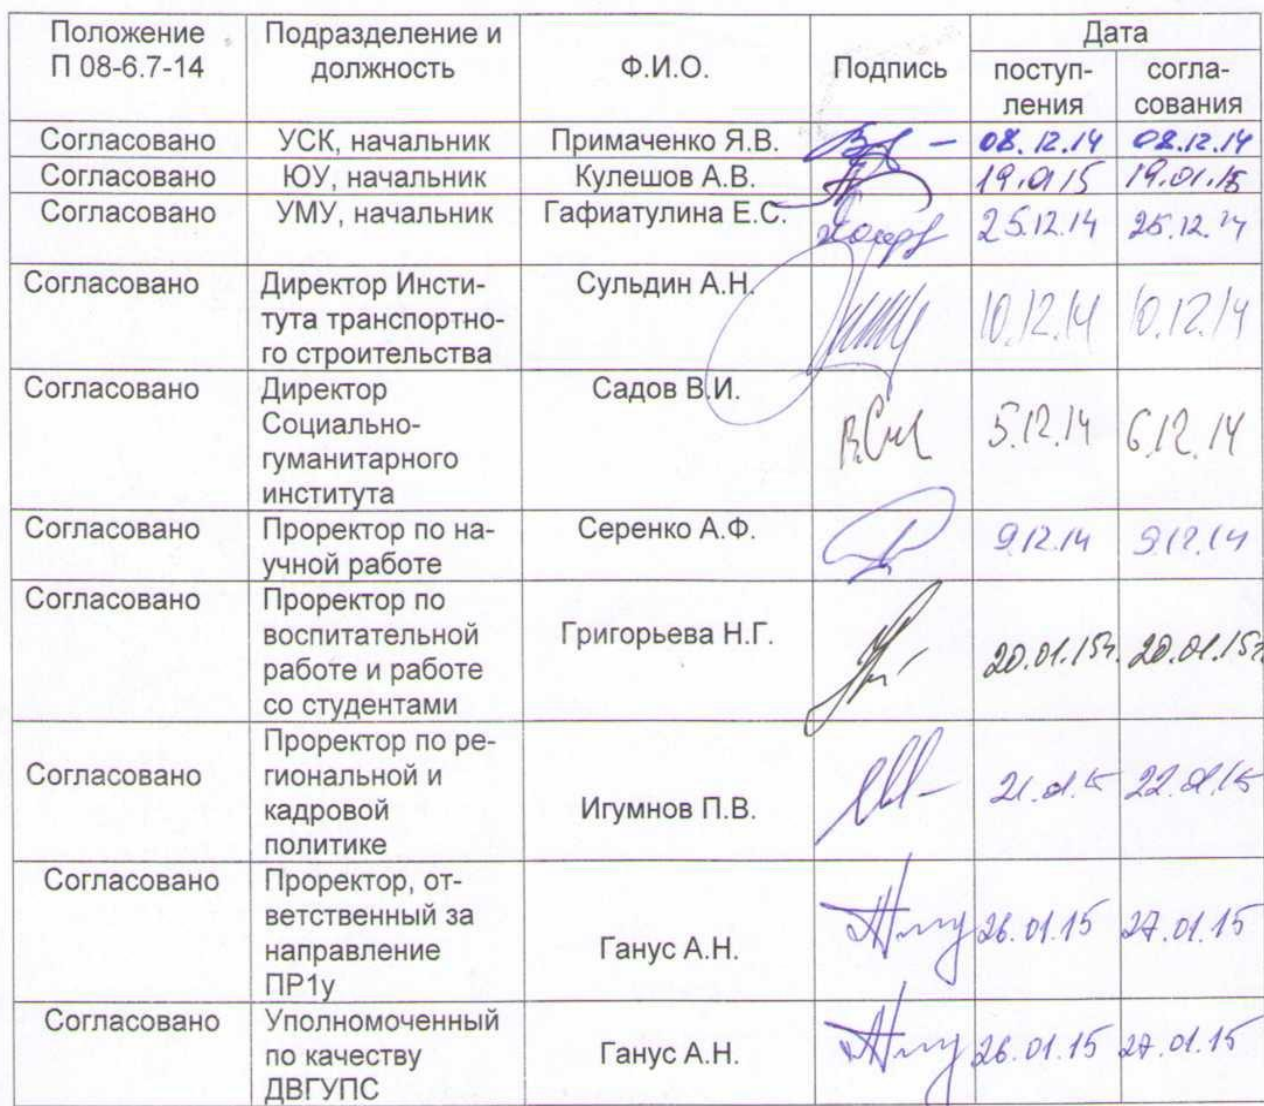 Положение
П 08-6.7-14
Подразделение и
должность
Ф.И.О.
Подпись
Дата
поступ-
ления
согла-
сования
Согласовано
УСК, начальник
Примаченко Я.В.
08.12.14
08.12.14
Согласовано
ЮУ, начальник
Кулешов А.В.
19.01.15
19.01.15
Согласовано
УМУ, начальник
Гафиатулина Е.С.
25.12.14
25.12.14
Согласовано
Директор Инсти-
тута транспортно-
го строительства
Сульдин А.Н.
10.12.14
10.12.14
Согласовано
Директор
Социально-
гуманитарного
института
Садов В.И.
5.12.14
6.12.14
Согласовано
Проректор по на-
учной работе
Серенко А.Ф.
9.12.14
9.12.14
Согласовано
Проректор по
воспитательной
работе и работе
со студентами
Григорьева Н.Г.
20.01.15г.
20.01.15г.
Согласовано
Проректор по ре-
гиональной и
кадровой
политике
Игумнов П.В.
21.01.15
22.01.15
Согласовано
Проректор, от-
ветственный за
направление
ПР1у
Ганус А.Н.
26.01.15
27.01.15
Согласовано
Уполномоченный
по качеству
ДВГУПС
Ганус А.Н.
26.01.15
27.01.15